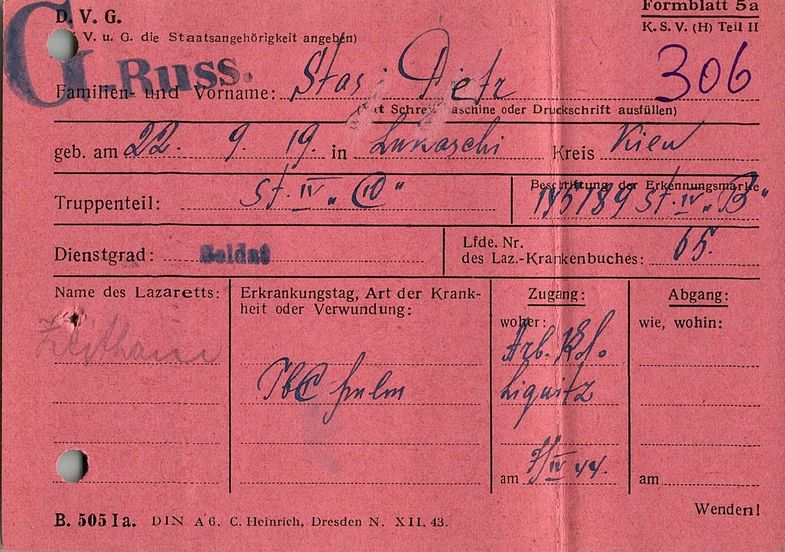 D. V. G.
Formblatt 5a
V. u. G. die Staatsangehörigkeit angeben)
K. S. V. (H) Teil II
G Russ.
306
Familien- und Vorname: Stas Pietr
(Mit Schreibmaschine oder Druckschrift ausfüllen)
geb. am 22. 9. 19. in Lukaschi Kreis Kiew
Beschriftung der Erkennungsmarke
Truppenteil: St. IV „ "
St. IV „B"
Dienstgrad: Soldat
Lfde. Nr.
des Laz.-Krankenbuches: 65.
Name des Lazaretts:
Zeithain
Erkrankungstag, Art der Krank-
heit oder Verwundung:
Tbc pulm
Zugang:
woher:
Arb. Kdo.
Liegnitz
am 7/IV 44.
Abgang:
wie, wohin:
am
Wenden!
B. 505 Ia. DIN A 6. C. Heinrich, Dresden N. XII. 43.